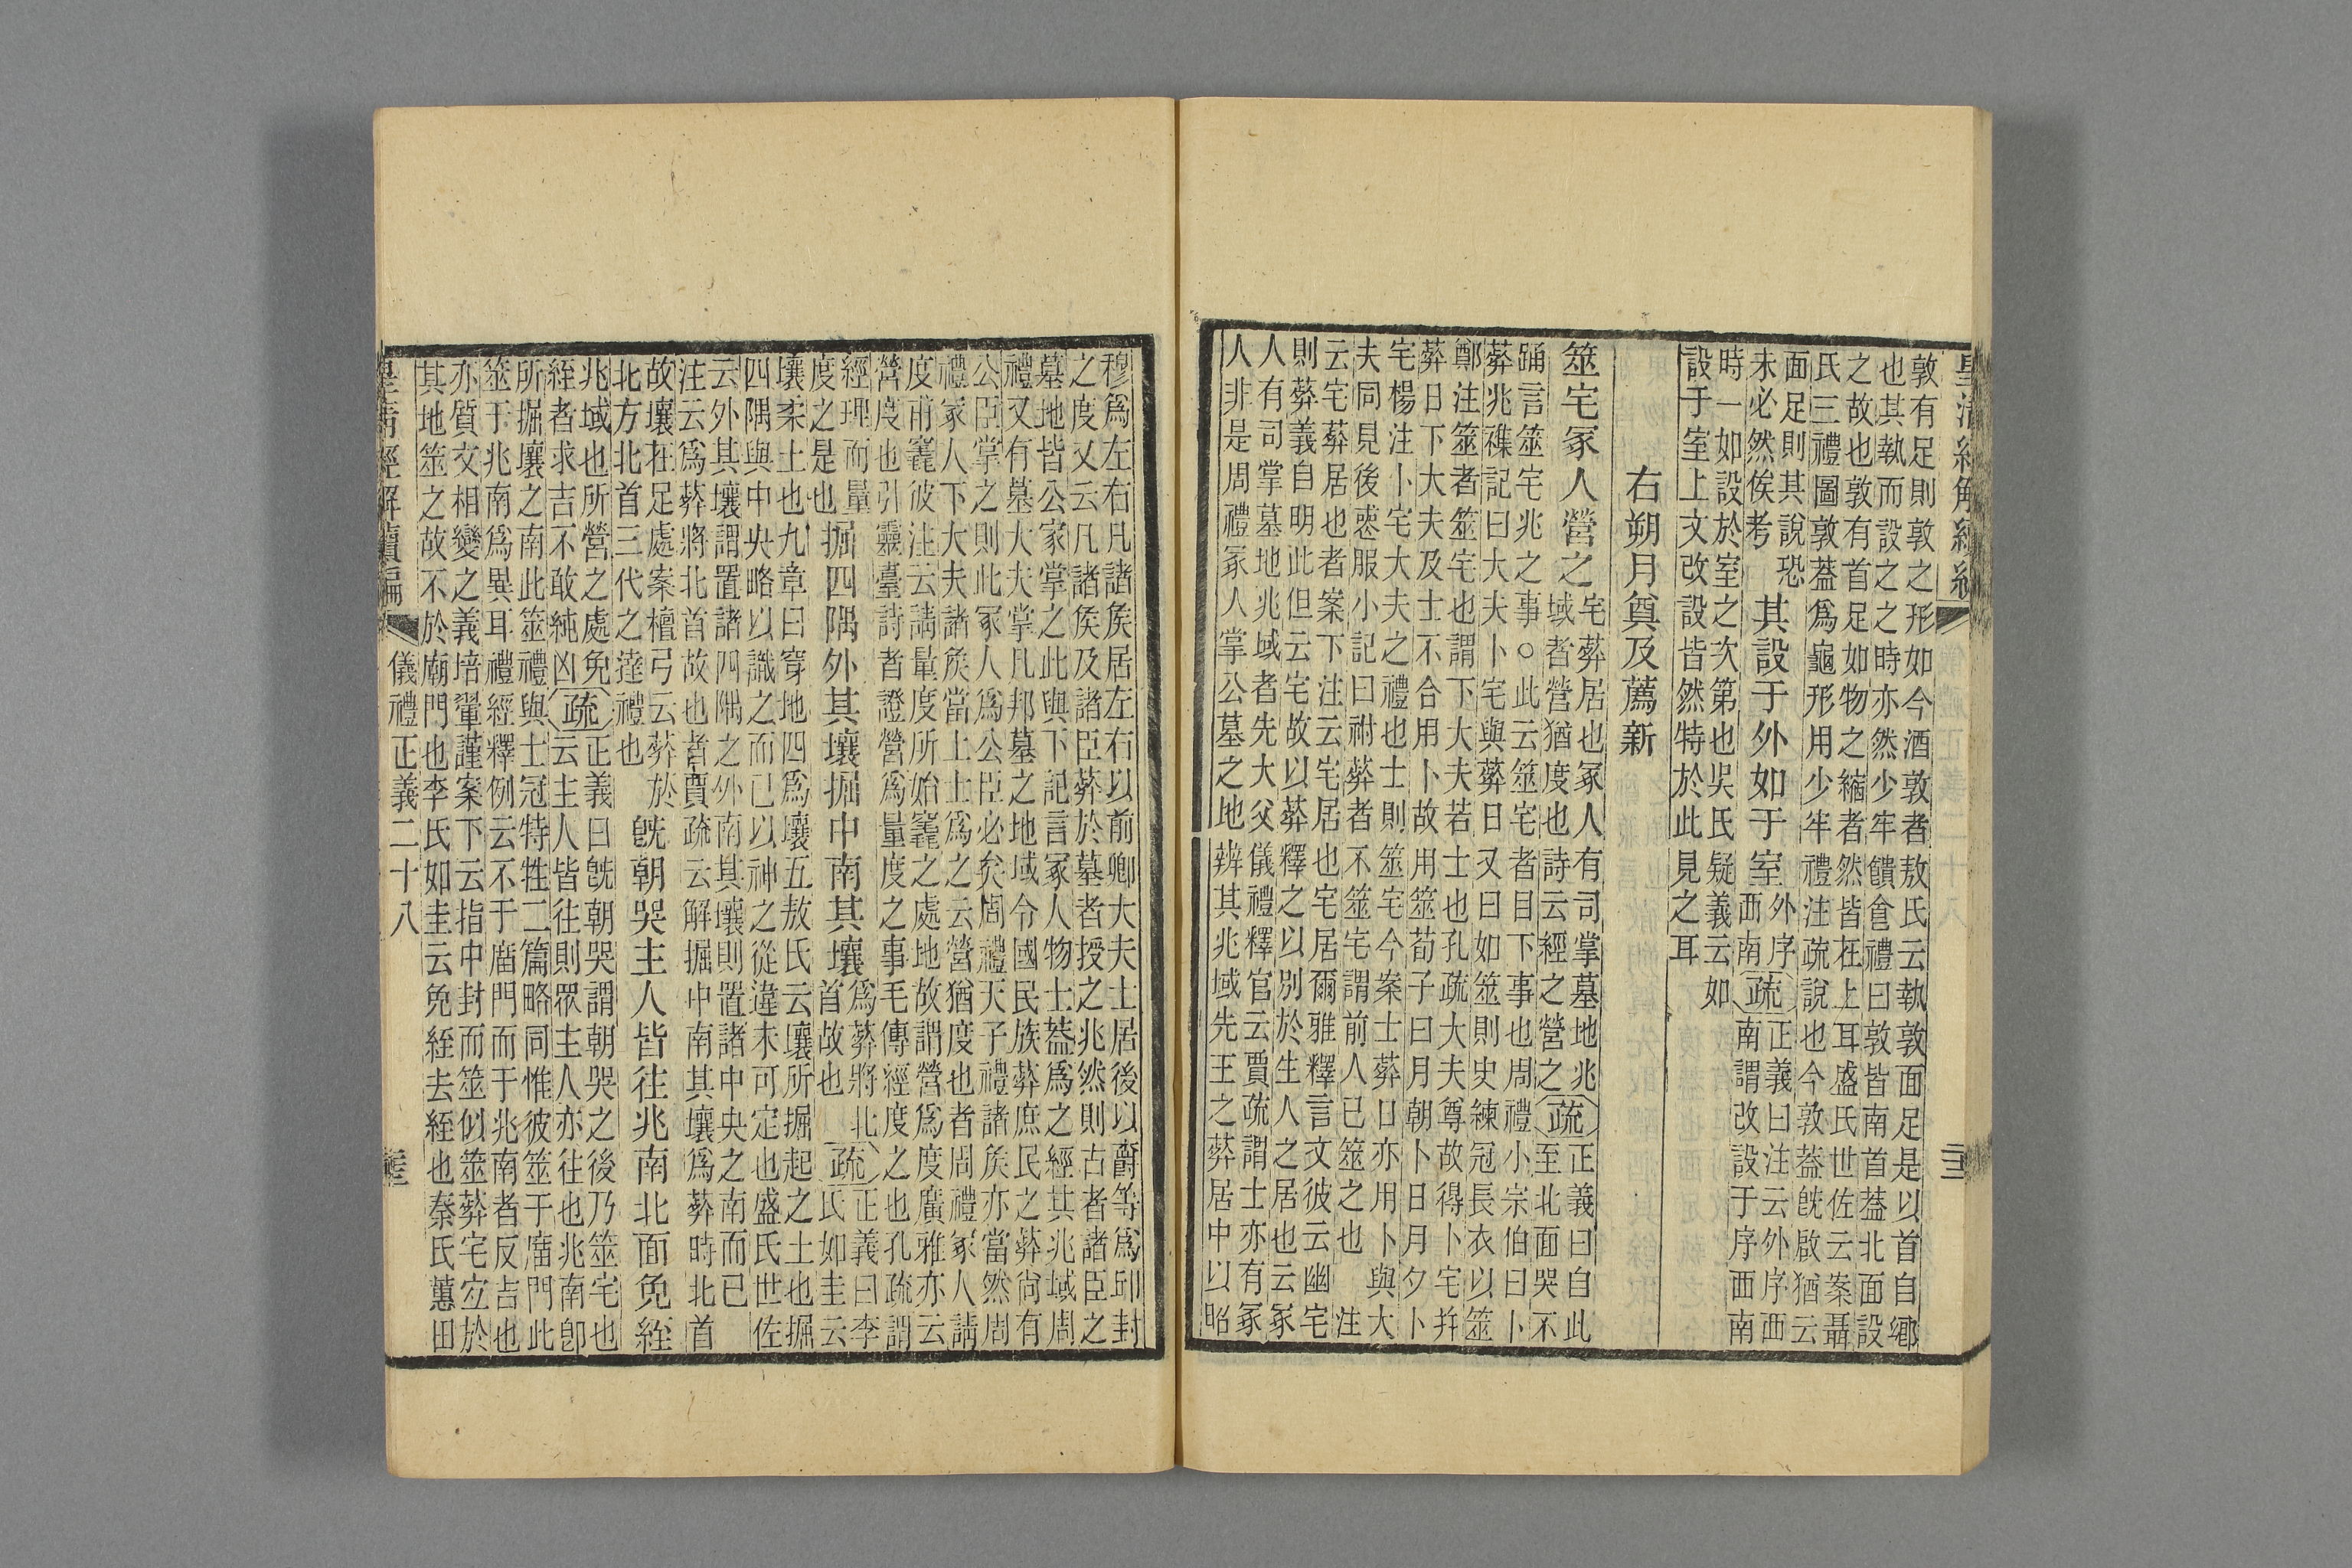 皇清經解續編
敦有足則敦之形如今酒敦者敖氏云執敦面足是以首自鄉
也其執而設之之時亦然少牢饋食禮曰敦皆南首葢北面設
之故也敦有首足如物之縮者然皆在上耳盛氏世佐云案聶
氏三禮圖敦葢爲龜形用少牢禮注疏說也今敦葢旣啟猶云
面足則其說恐
未必然俟考
其設于外如于室
外序
西南
疏
正義曰注云外序西
南謂改設于序西南
時一如設於室之次第也吳氏疑義云如
設于室上文改設皆然特於此見之耳
右朔月奠及薦新
筮宅冢人營之
宅葬居也冢人有司掌墓地兆
域者營猶度也詩云經之營之
疏
正義曰自此
至北面哭不
踊言筮宅兆之事○此云筮宅者目下事也周禮小宗伯曰卜
葬兆襍記曰大夫卜宅與葬日又曰如筮則史練冠長衣以筮
鄭注筮者筮宅也謂下大夫若士也孔疏大夫尊故得卜宅幷
葬日下大夫及士不合用卜故用筮荀子曰月朝卜日月夕卜
宅楊注卜宅大夫之禮也士則筮宅今案士葬日亦用卜與大
夫同見後喪服小記曰祔葬者不筮宅謂前人已筮之也　注
云宅葬居也者案下注云宅居也宅居爾雅釋言文彼云幽宅
則葬義自明此但云宅故以葬釋之以別於生人之居也云冢
人有司掌墓地兆域者先大父儀禮釋官云賈疏謂士亦有冢
人非是周禮冢人掌公墓之地辨其兆域先王之葬居中以昭
穆爲左右凡諸矦居左右以前卿大夫士居後以爵等爲邱封
之度又云凡諸矦及諸臣葬於墓者授之兆然則古者諸臣之
墓地皆公家掌之此與下記言冢人物士葢爲之經其兆域周
禮又有墓大夫掌凡邦墓之地域令國民族葬庶民之葬尙有
公臣掌之則此冢人爲公臣必矣周禮天子禮諸矦亦當然周
禮冢人下大夫諸矦當上士爲之云營猶度也者周禮冢人請
度甫竁彼注云請量度所始竁之處地故謂營爲度廣雅亦云
營度也引靈臺詩者證營爲量度之事毛傳經度之也孔疏謂
經理而量
度之是也
掘四隅外其壤掘中南其壤
爲葬將北
首故也
疏
正義曰李
氏如圭云
壤柔土也九章曰穿地四爲壤五敖氏云壤所掘起之土也掘
四隅與中央略以識之而已以神之從違未可定也盛氏世佐
云外其壤謂置諸四隅之外南其壤則置諸中央之南而已　
注云爲葬將北首故也者賈疏云解掘中南其壤爲葬時北首
故壤在足處案檀弓云葬於
北方北首三代之達禮也
旣朝哭主人皆往兆南北面免絰
兆域也所營之處免
絰者求吉不敢純凶
疏
正義曰旣朝哭謂朝哭之後乃筮宅也
云主人皆往則眾主人亦往也兆南卽
所掘壤之南此筮禮與士冠特牲二篇略同惟彼筮于廟門此
筮于兆南爲異耳禮經釋例云不于廟門而于兆南者反吉也
亦質文相變之義培翬謹案下云指中封而筮似筮葬宅宜於
其地筮之故不於廟門也李氏如圭云免絰去絰也秦氏蕙田
皇清經解續編
儀禮正義二十八